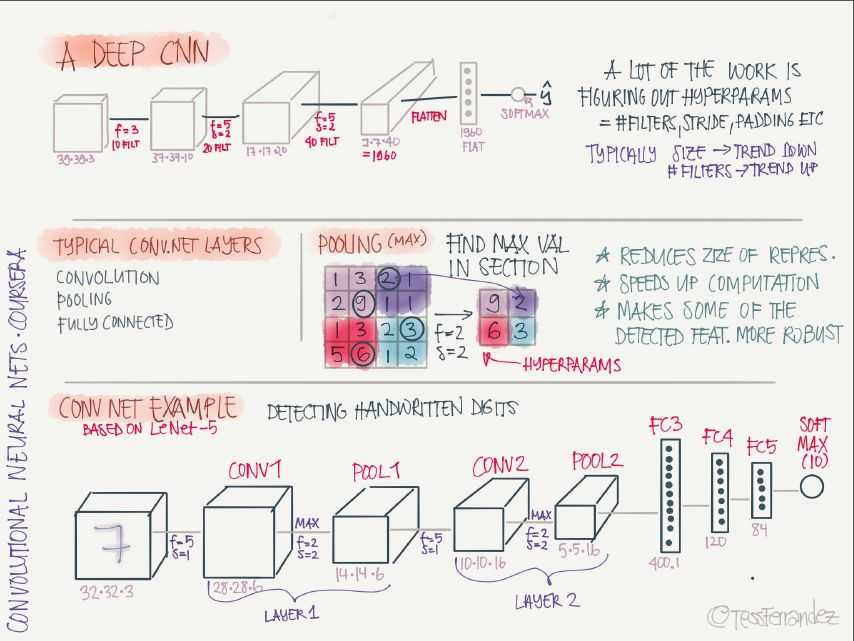 A DEEP CNN
39·39·3
f=3
10 FILT
37·37·10
f=5
s=2
20 FILT
17·17·20
f=5
s=2
40 FILT
7·7·40
=1960
FLATTEN
1960
FLAT
ŷ
SOFTMAX
A LOT OF THE WORK IS
FIGURING OUT HYPERPARAMS
= #FILTERS, STRIDE, PADDING ETC
TYPICALLY SIZE → TREND DOWN
# FILTERS → TREND UP
TYPICAL CONV.NET LAYERS
CONVOLUTION
POOLING
FULLY CONNECTED
POOLING (MAX)
FIND MAX VAL
IN SECTION
1 3 2 1
2 9 1 1
1 3 2 3
5 6 1 2
f=2
s=2
9 2
6 3
HYPERPARAMS
* REDUCES ZIZE OF REPRES.
* SPEEDS UP COMPUTATION
* MAKES SOME OF THE
DETECTED FEAT. MORE ROBUST
CONV NET EXAMPLE
BASED ON LeNet-5
DETECTING HANDWRITTEN DIGITS
7
32·32·3
f=5
s=1
CONV1
28·28·6
MAX
f=2
s=2
POOL1
14·14·6
LAYER 1
f=5
s=1
CONV2
10·10·16
MAX
f=2
s=2
POOL2
5·5·16
LAYER 2
FC3
400.1
FC4
120
FC5
84
SOFT
MAX
(10)
CONVOLUTIONAL NEURAL NETS · COURSERA
@TessFerrandez